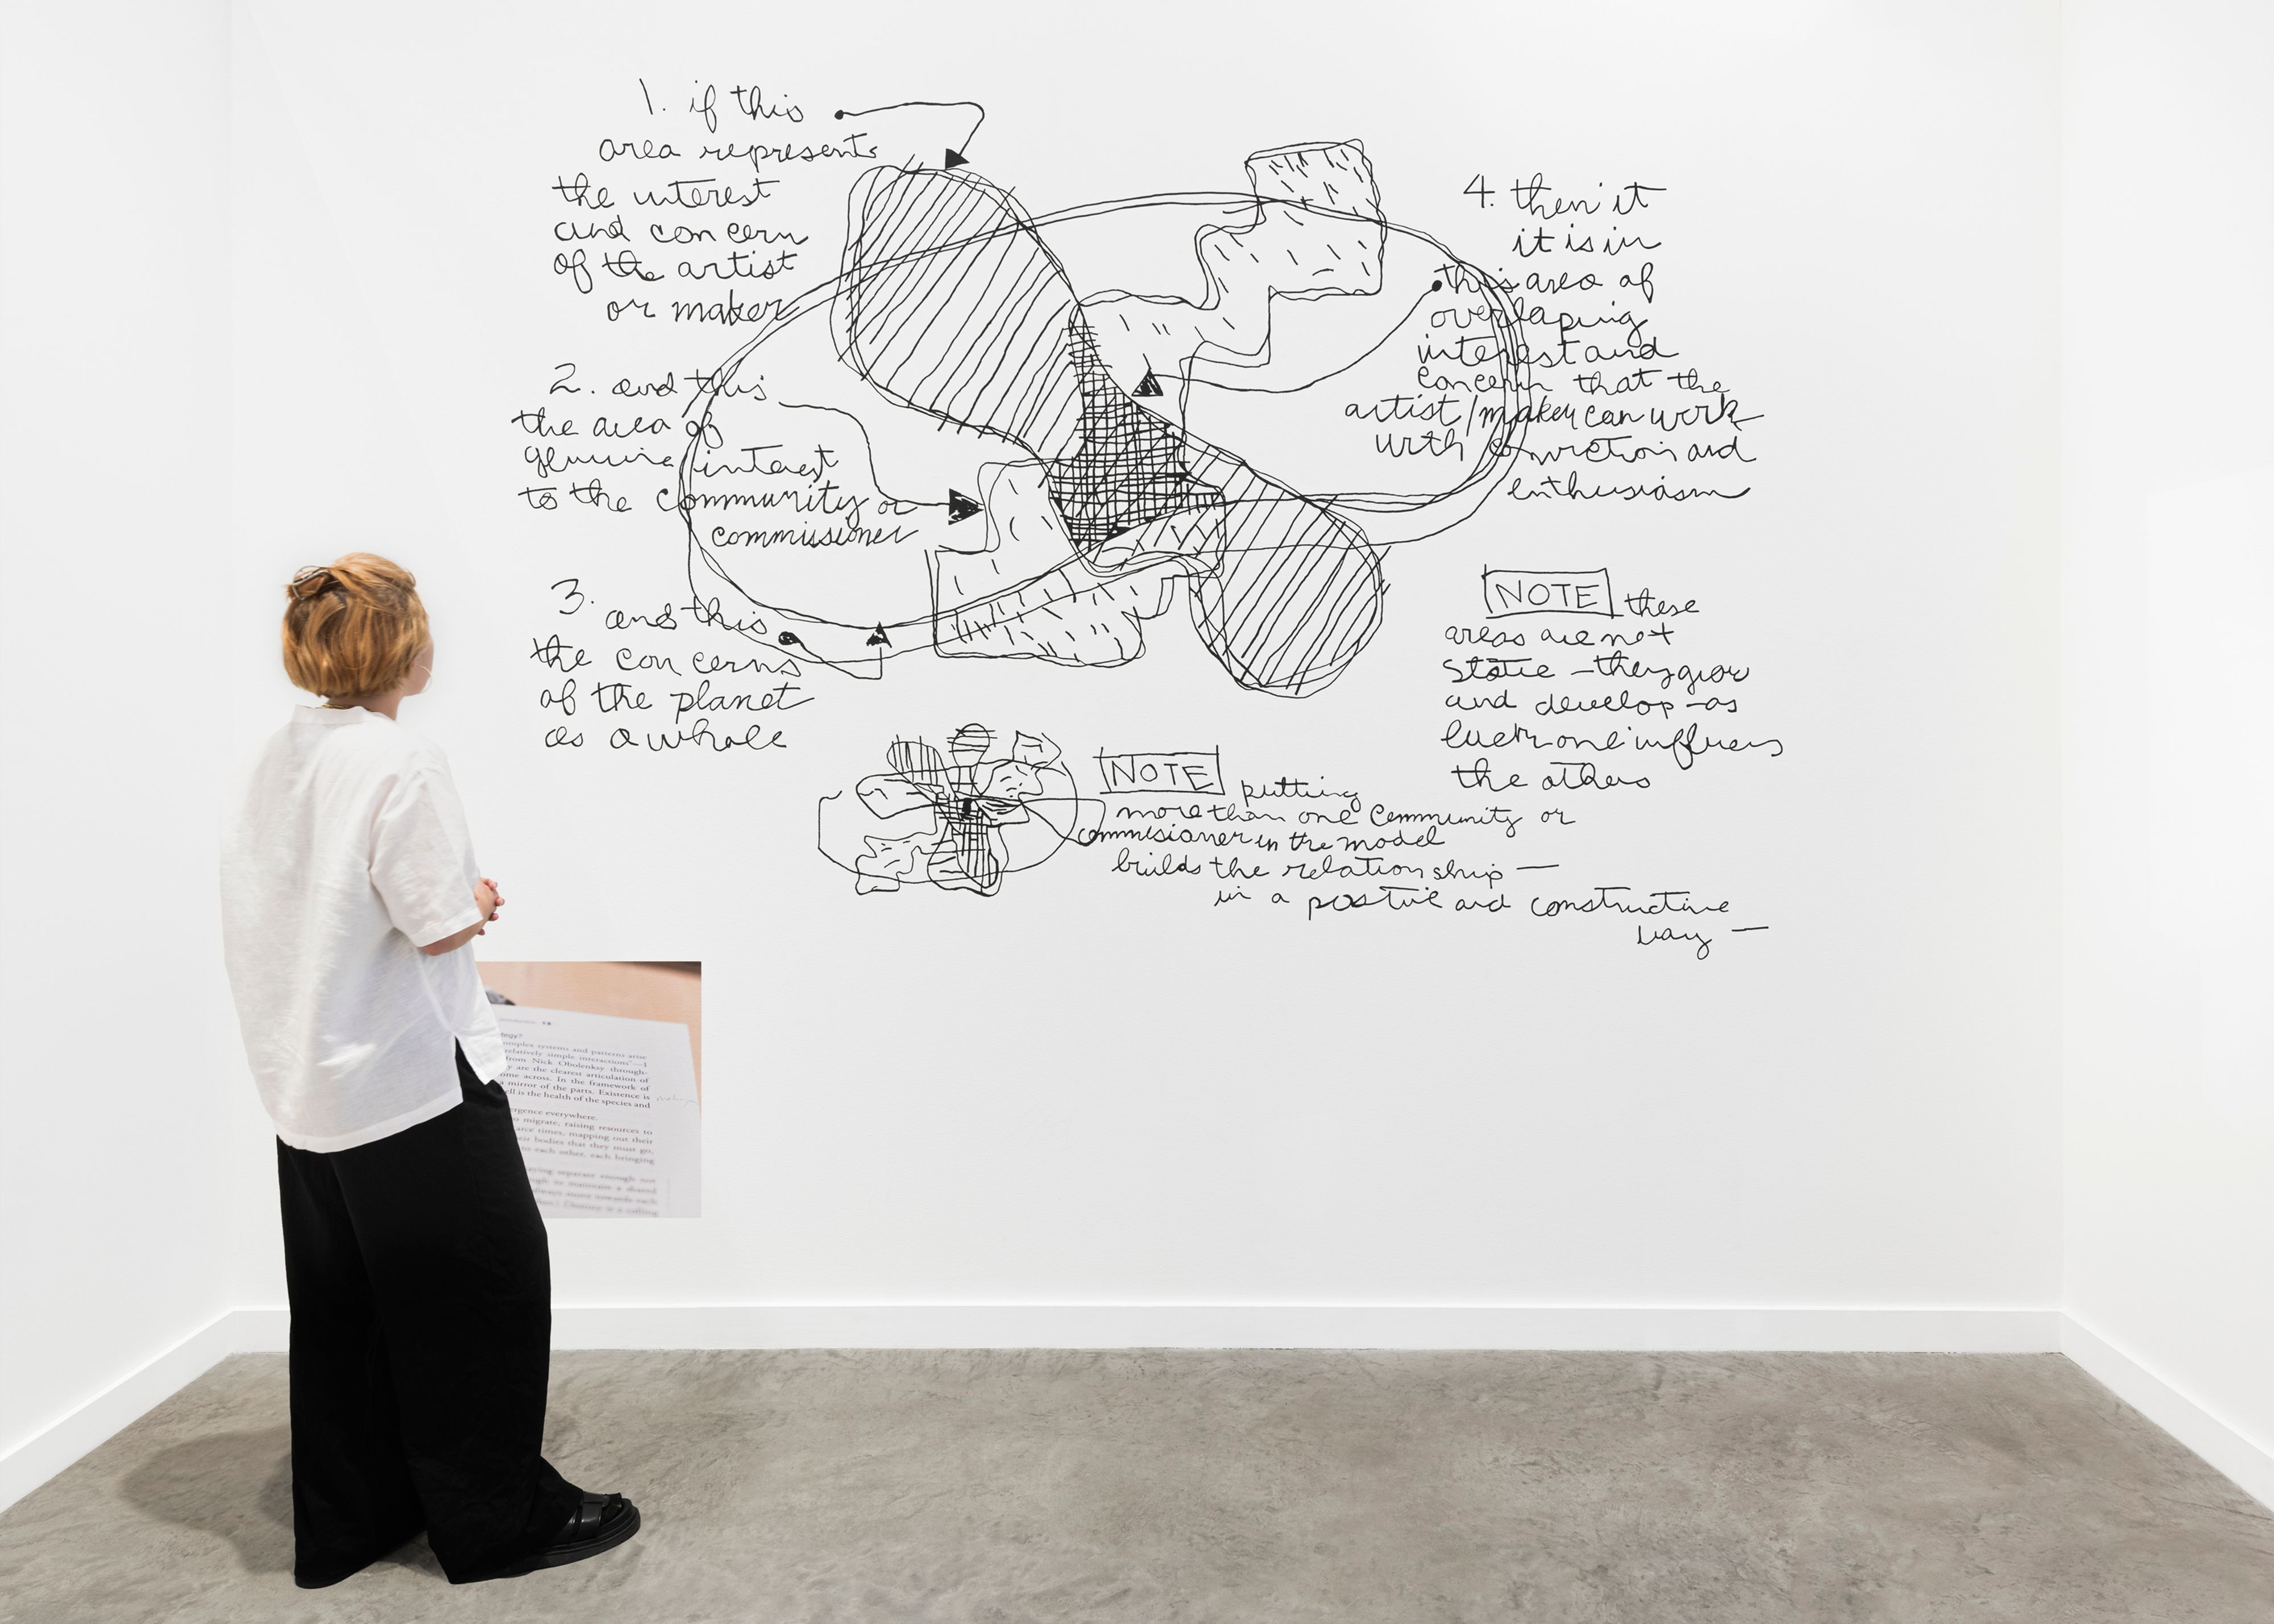 1. if this
area represents
the interest
and concern
of the artist
or maker
2. and this
the area of
genuine interest
to the community or
commissioner
3. and this
the concerns
of the planet
as a whole
4. then it
it is in
this area of
overlaping
interest and
concern that the
artist/maker can work
with conviction and
enthusiasm
NOTE these
areas are not
static – they grow
and develop – as
each one influences
the others
NOTE putting
more than one community or
commisioner in the model
builds the relationship —
in a positive and constructive
way —
omplex systems and patterns arise
relatively simple interactions"—I
from Nick Obolensky through-
y are the clearest articulation of
ome across. In the framework of
a mirror of the parts. Existence is
ell is the health of the species and
ergence everywhere.
o migrate, raising resources to
arce times, mapping out their
eir bodies that they must go,
to each other, each bringing
aying separate enough not
ugh to maintain a shared
always move towards each
Destiny is a calling